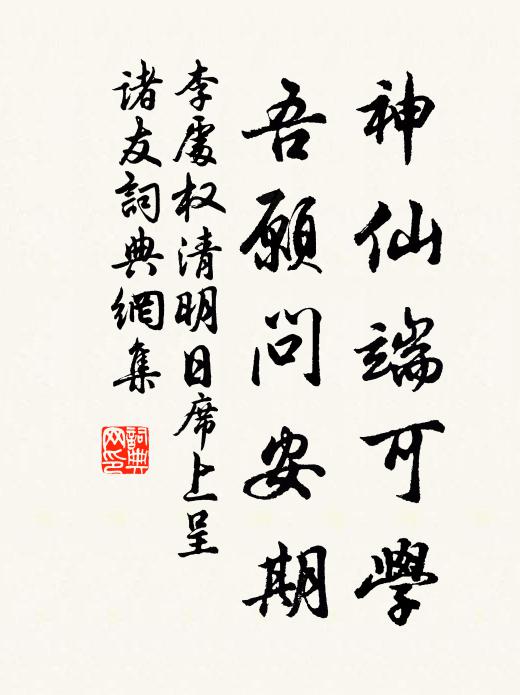 神仙端可學
吾願問安期
李處权清明日席上呈
諸友詞典網集
詞典
网印